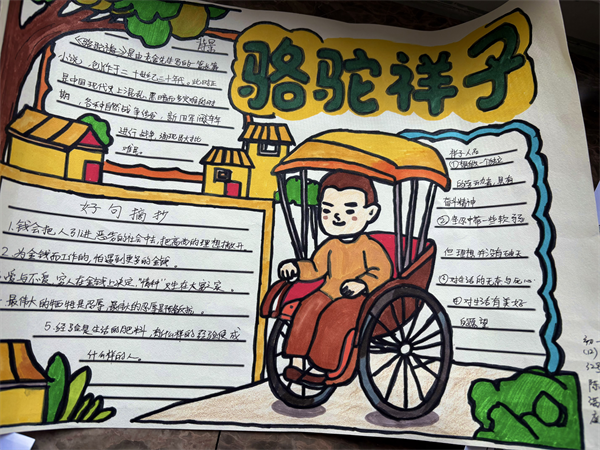 骆驼祥子
背景
《骆驼祥子》是由老舍先生写的一篇长篇
小说，创作于二十世纪三十年代，此时正
是中国现代史上混乱、黑暗而多灾难的时
期，
进行战争，
难民。
好句摘抄
1.钱会把人引进恶劣的社会中去，把高尚的理想撇开
2.为金钱而工作的，怕遇到更多的金钱。
爱与不爱，穷人在金钱上决定，"情种"只生在大富之家。
最伟大的牺牲是忍辱，最伟大的忍辱是预备反抗。
5.经验是生活的肥料，有什么样的经验便成
什么样的人。
祥子人品
①
的劳动者，具有
奋斗精神
②生命中带一些软弱
但理想并没有破灭
③对生活的无奈与死心
④对生活有美好
的愿望
初一
(12)
陈